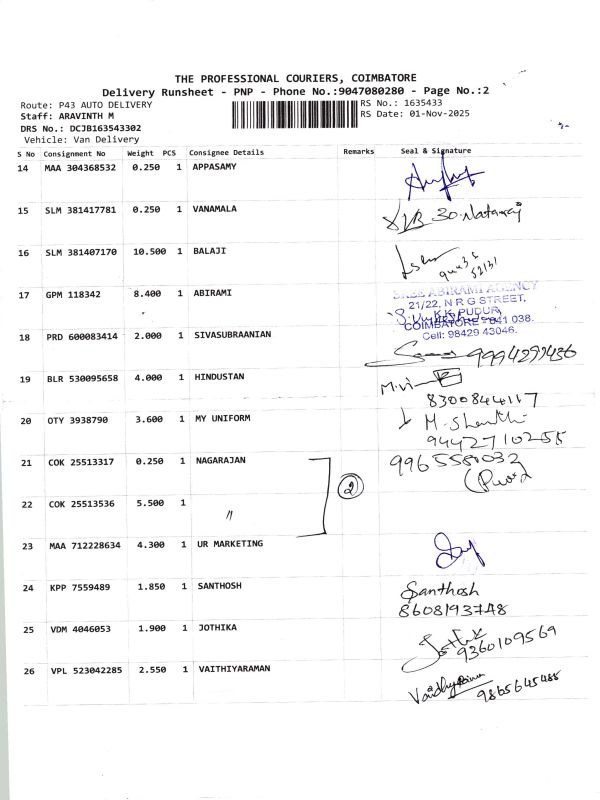 THE PROFESSIONAL COURIERS, COIMBATORE
Delivery Runsheet - PNP - Phone No.:9047080280 - Page No.:2
Route: P43 AUTO DELIVERY
RS No.: 1635433
Staff: ARAVINTH M
RS Date: 01-Nov-2025
DRS No.: DCJB163543302
Vehicle: Van Delivery
S No Consignment No Weight PCS Consignee Details Remarks Seal & Signature
14 MAA 304368532 0.250 1 APPASAMY
15 SLM 381417781 0.250 1 VANAMALA
30.Nataraj
16 SLM 381407170 10.500 1 BALAJI
52131
17 GPM 118342 8.400 1 ABIRAMI
SREE ABIRAMI AGENCY
21/22, N R G STREET,
K.K. PUDUR,
COIMBATORE - 641 038.
Cell: 98429 43046.
18 PRD 600083414 2.000 1 SIVASUBRAANIAN
9994299436
19 BLR 530095658 4.000 1 HINDUSTAN
8300844117
20 OTY 3938790 3.600 1 MY UNIFORM
M. Shanthi
9442710255
21 COK 25513317 0.250 1 NAGARAJAN
2
22 COK 25513536 5.500 1 〃
23 MAA 712228634 4.300 1 UR MARKETING
24 KPP 7559489 1.850 1 SANTHOSH
Santhosh
8608193748
25 VDM 4046053 1.900 1 JOTHIKA
9360109569
26 VPL 523042285 2.550 1 VAITHIYARAMAN
9865645485